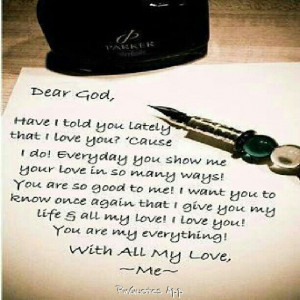 PARKER
Dear God,
Have I told you lately
that I love you? 'Cause
I do! Everyday you show me
your love in so many ways!
You are so good to me! I want you to
know once again that I give you my
life & all my love! I love you!
You are my everything!
With All My Love,
~Me~
App